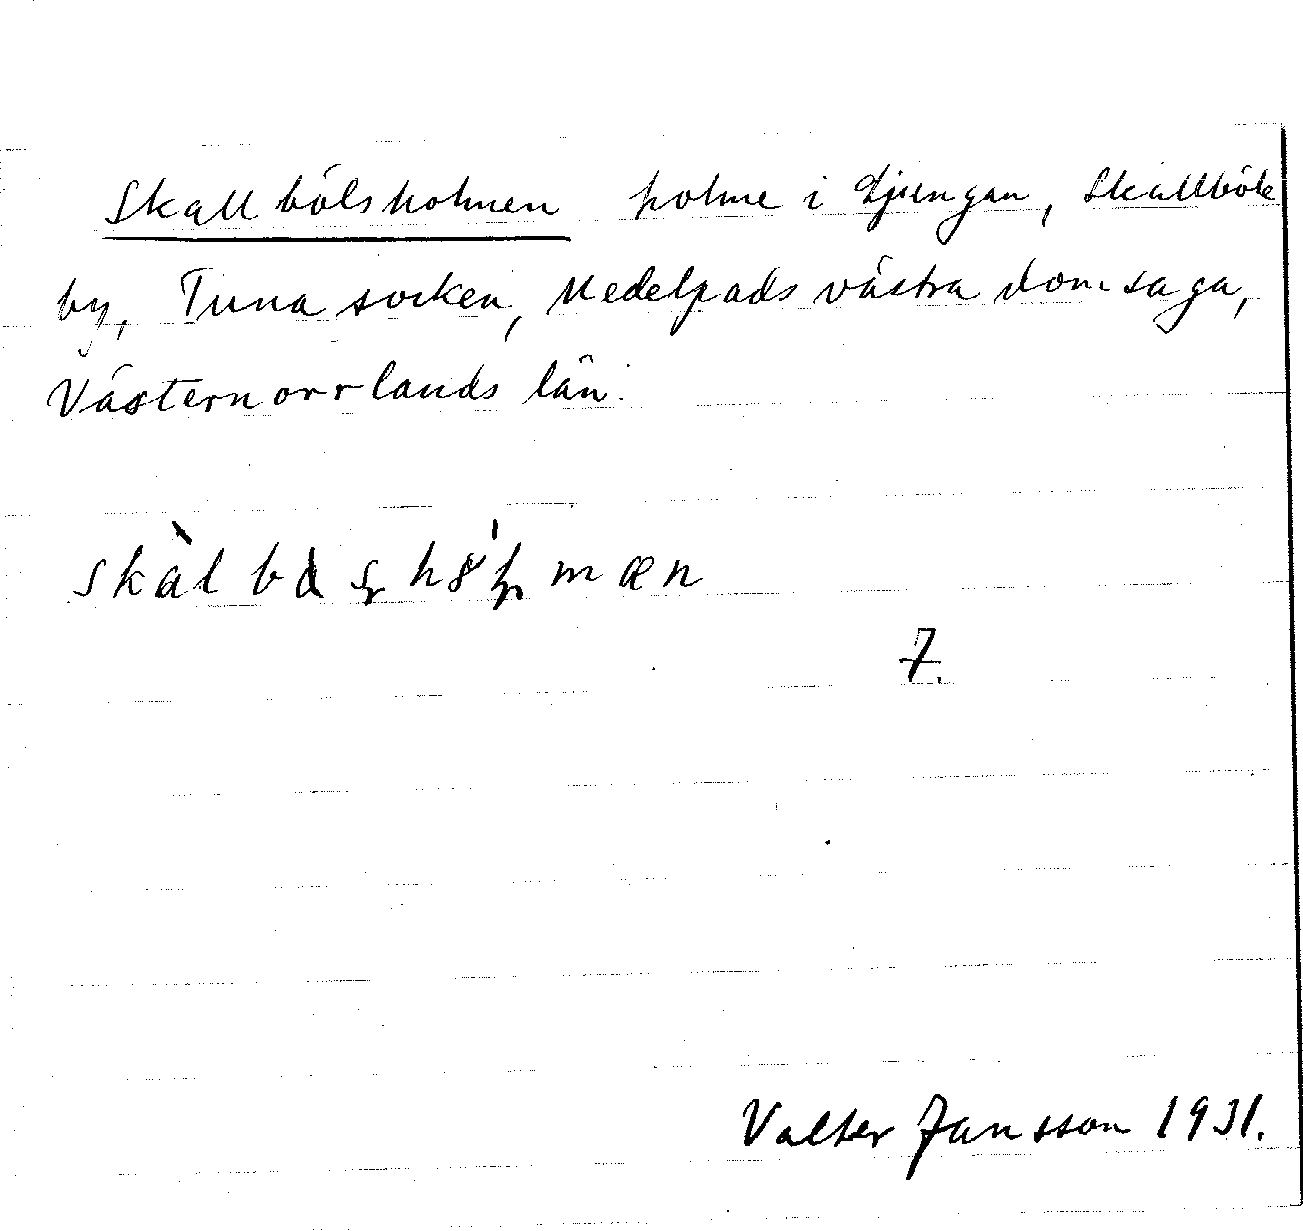 Skallbölsholmen holme i Ljungan, Skallböle
by, Tuna socken, Medelpads västra domsaga,
Västernorrlands län.
7.
Valter Jansson 1931.